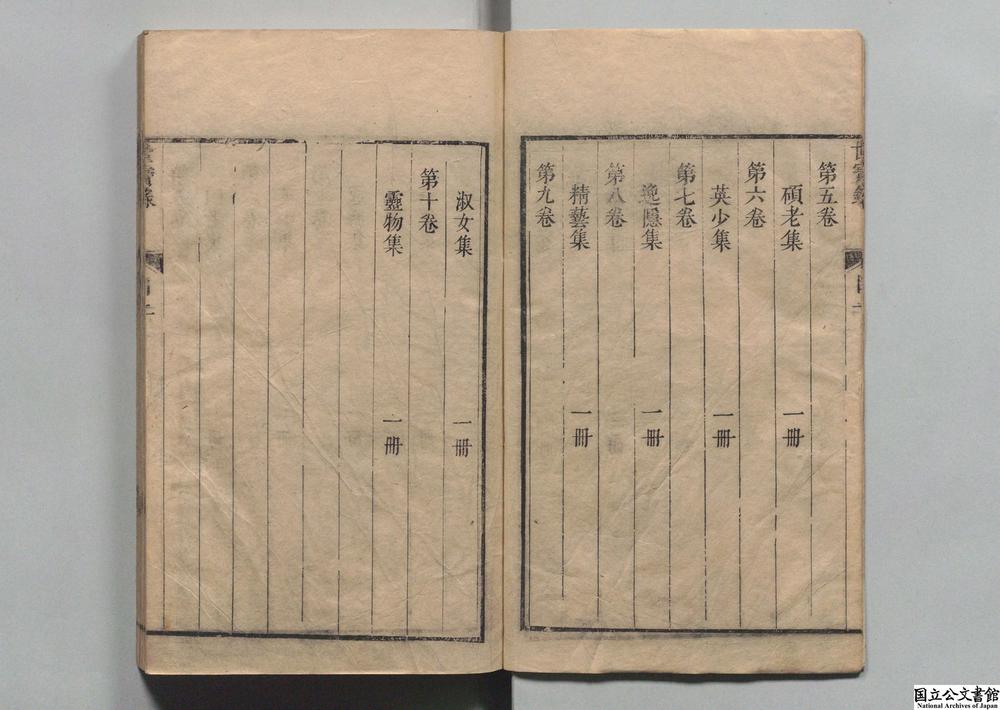 第五卷
碩老集 一冊
第六卷
英少集 一冊
第七卷
逸隱集 一冊
第八卷
精藝集 一冊
第九卷
淑女集 一冊
第十卷
靈物集 一冊
国立公文書館
National Archives of Japan